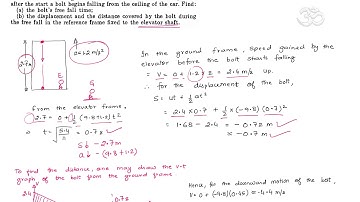 after the start a bolt begins falling from the ceiling of the car. Find:
(a) the bolt's free fall time;
(b) the displacement and the distance covered by the bolt during
the free fall in the reference frame fixed to the elevator shaft.
2.7m
a=1.2 m/s²
E
G
In the ground frame, speed gained by the
elevator before the bolt starts falling
= v = 0 + 1.2 × 2 = 2.4 m/s up.
∴ for the displacement of the bolt,
S = ut + ½ at²
= 2.4 × 0.7 + ½ × (-9.8)(0.7)²
= 1.68 - 2.4 = -0.72 m
≈ -0.7 m
From the elevator frame,
2.7 = 0 + ½ (9.8+1.2) t²
t = √5.4/11 = 0.7 s
S↓ - 2.7m
a↓ - (9.8+1.2)
To find the distance, one may draw the v-t
graph of the bolt from the ground frame.
2.4
0.7s
Hence, for the downward motion of the bolt,
V = 0 + (-9.8)(0.45) = -4.4 m/s